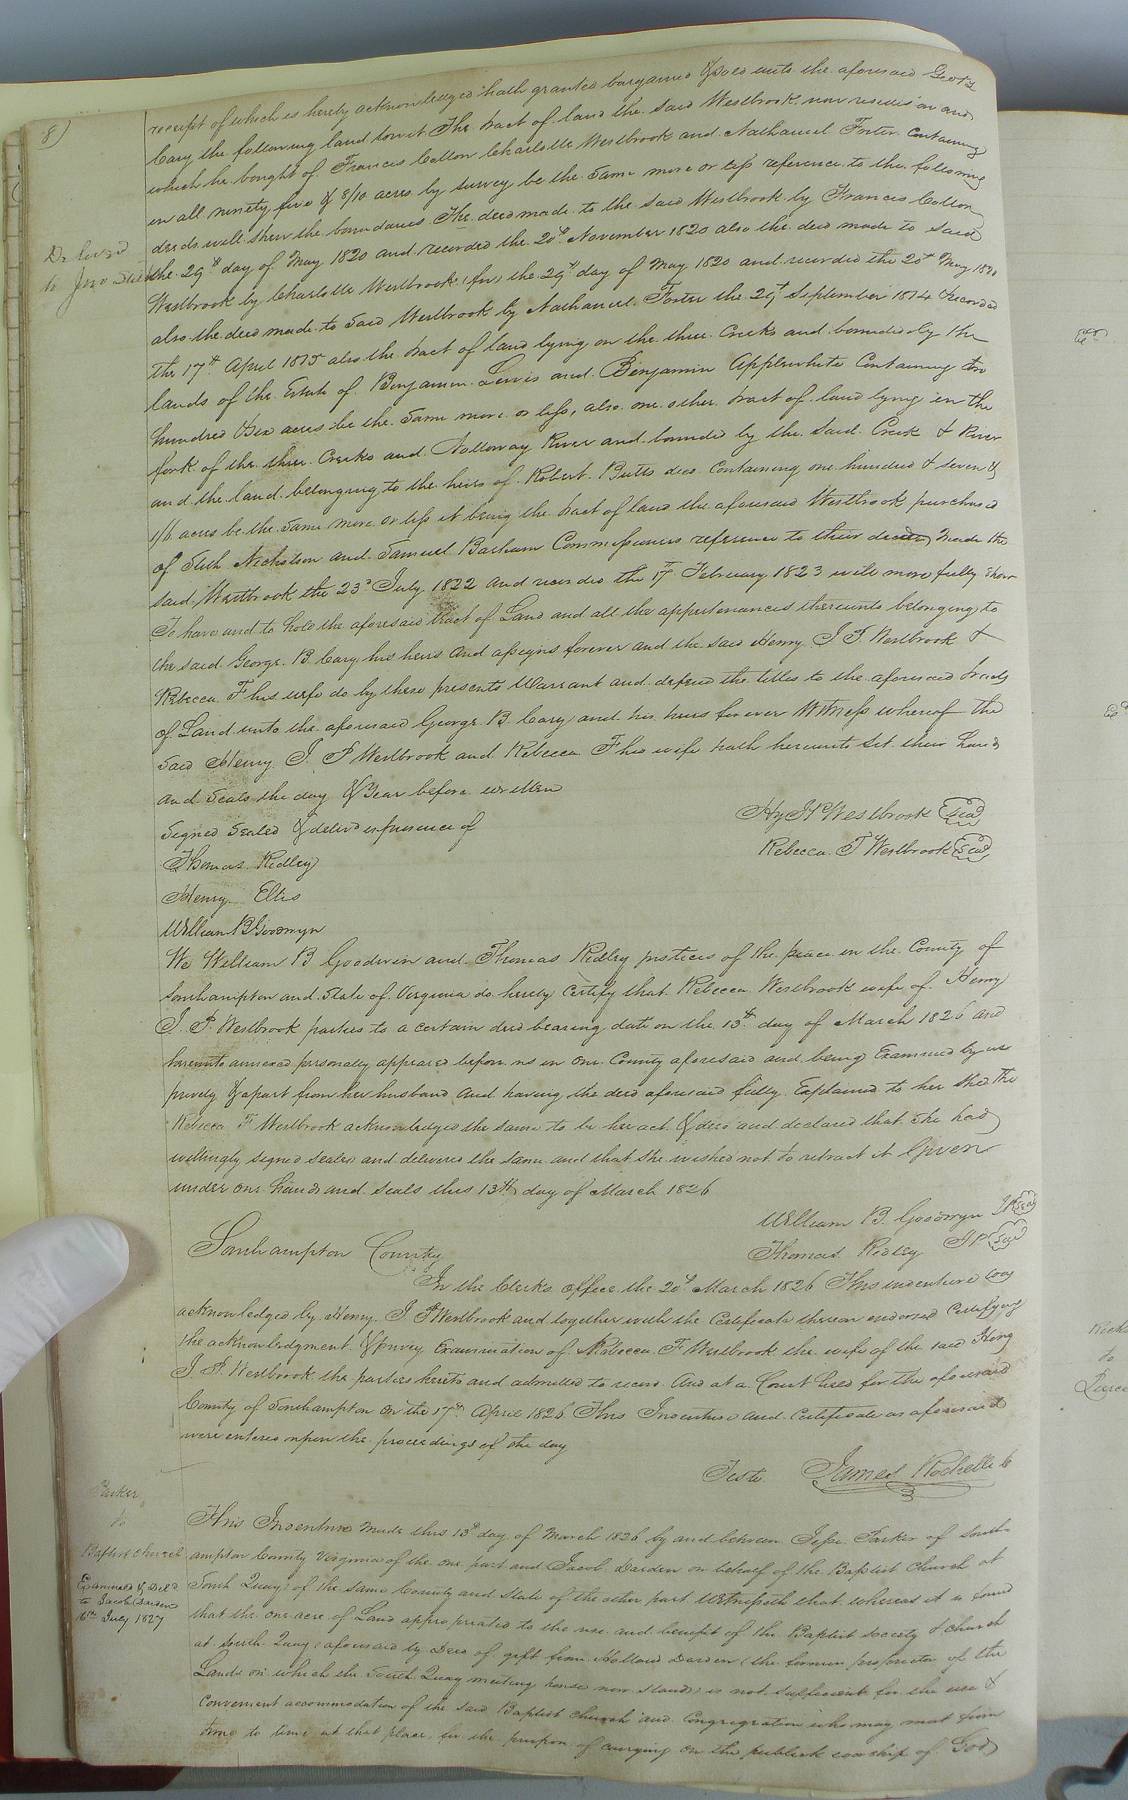 8)
receipt of which is hereby acknowledged hath granted bargained & sold unto the aforesaid George B
Cary the following land towit The tract of land the said Westbrook now resides on and
which he bought of Francis Colton Charlotte Westbrook and Nathaniel Foster containing
in all ninety five & 8/10 acres by survey be the same more or less reference to the following
deeds will shew the boundaries The deed made to the said Westbrook by Francis Colton
Deliverd
to Jno
the 29th day of May 1820 and recorded the 20th November 1820 also the deed made to said
Westbrook by Charlotte Westbrook the 29th day of May 1820 and recorded the 20th May 1820
also the deed made to said Westbrook by Nathaniel Foster the 29th September 1814 & recorded
the 17th April 1815 also the tract of land lying on the three Creeks and bounded by the
lands of the Estate of Benjamin Lewis and Benjamin Applewhite Containing two
hundred & six acres be the same more or less, also one other tract of land lying in the
fork of the three Creeks and Nottoway River and bounded by the said Creek & River
and the land belonging to the heirs of Robert Butts decd Containing one hundred & seven &
1/6 acres be the same more or less it being the tract of land the aforesaid Westbrook purchased
of Nicholson and Samuel Barham Commissioners reference to their deeds made the
said Westbrook the 23d July 1822 and recorded the 17th February 1823 will more fully shew
To have and to hold the aforesaid tract of Land and all the appertenances thereunto belonging to
the said George B. Cary his heirs and assigns forever and the said Henry J. P. Westbrook &
Rebecca F his wife do by these presents Warrant and defend the titles to the aforesaid tracts
of Land unto the aforesaid George B Cary and his heirs forever Witness whereof the
said Henry J. P Westbrook and Rebecca F his wife hath hereunto set their hands
and seals the day & year before written
Signed Sealed & delivd in presence of
Hy JP Westbrook Seal
Thomas Ridley
Rebecca F Westbrook Seal
Henry Ellis
William B Goodwyn
We William B Goodwin and Thomas Ridley justices of the peace in the County of
Southampton and State of Virginia do hereby Certify that Rebecca Westbrook wife of Henry
J. P. Westbrook parties to a certain deed bearing date on the 13th day of March 1826 and
hereunto annexed personally appeared before us in our County aforesaid and being Examined by us
privily & apart from her husband and having the deed aforesaid fully Explained to her she the
Rebecca F Westbrook acknowledged the same to be her act & deed and declared that she had
willingly signed sealed and delivered the same and that she wished not to retract it Given
under our hands and seals this 13th day of March 1826
William B. Goodwyn JP Seal
Thomas Ridley JP Seal
Southampton County
In the Clerks office the 20th March 1826 This indenture was
acknowledged by Henry J P Westbrook and together with the Certificate thereon endorsed Certifying
the acknowledgment & privey Examination of Rebecca F Westbrook the wife of the said Henry
J. P. Westbrook the parties hereto and admitted to record And at a Court held for the aforesaid
County of Southampton on the 17th April 1826 This Indenture and Certificate as aforesaid
were entered upon the proceedings of the day
Teste James Rochelle C
Parker
to
Baptist church
Examined & Deld
to Jacob Darden
6th July 1827
This Indenture Made this 13th day of March 1826 by and between Jesse Parker of South-
ampton County Virginia of the one part and Jacob Darden on behalf of the Baptist Church at
South Quay of the same County and State of the other part Witnesseth that whereas it is found
that the one acre of Land appropriated to the use and benefit of the Baptist Society & church
at South Quay aforesaid by Deed of gift from Holland Darden (the former proprietor of the
Lands on which the South Quay meeting house now stands) is not sufficient for the use &
convenient accommodation of the said Baptist church and congregation who may meet from
time to time at that place for the purpose of carrying on the publick worship of God